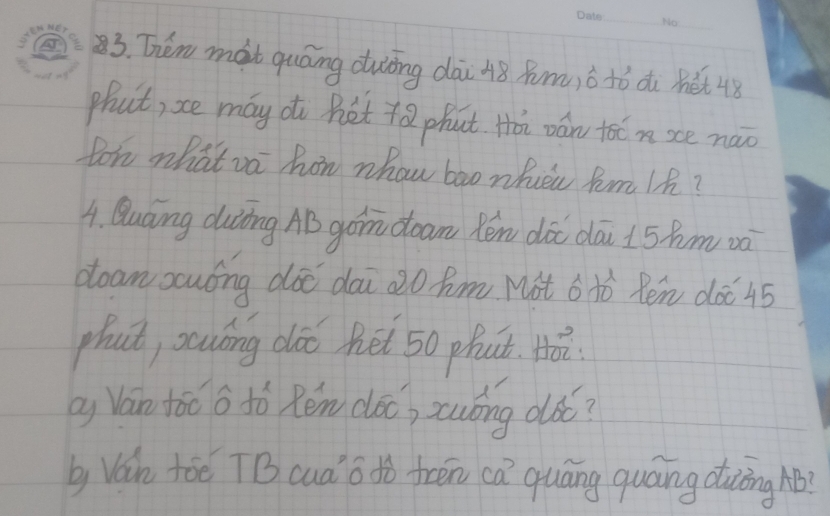 Date No:
LUYỆN NÉT CHỮ
3. Trên một quãng đường dài 48 km, ô tô đi hết 48
phút, xe máy đi hết 72 phút. Hỏi vận tốc xe nào
lớn nhất và hơn nhau bao nhiêu km/h?
4. Quãng đường AB gồm đoạn lên dốc dài 15km và
đoạn xuống dốc dài 20 km. Một ô tô lên dốc 45
phút, xuống dốc hết 50 phút. Hỏi:
a) Vận tốc ô tô lên dốc, xuống dốc?
b) Vận tốc TB của ô tô trên cả quãng quãng đường AB?